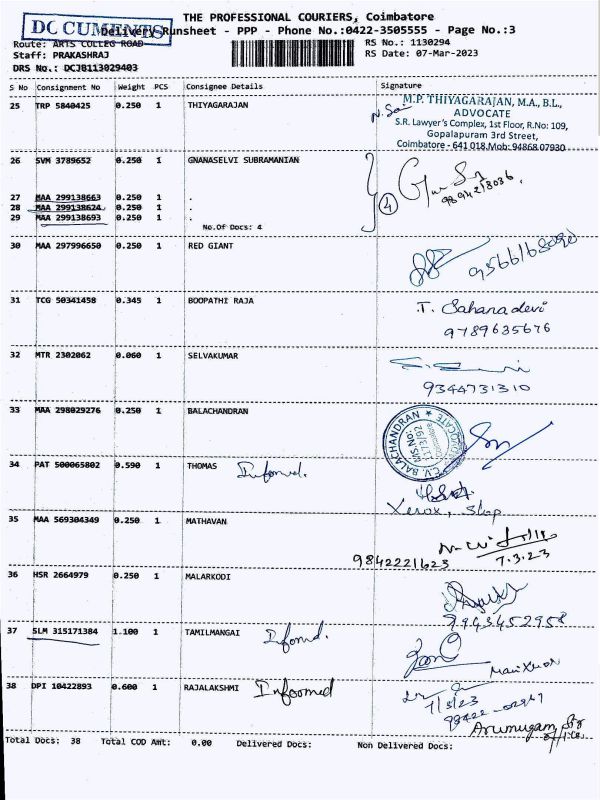 THE PROFESSIONAL COURIERS, Coimbatore
DC CUMENTS
Delivery Runsheet - PPP - Phone No.:0422-3505555 - Page No.:3
Route: ARTS COLLEG ROAD
RS No.: 1130294
Staff: PRAKASHRAJ
RS Date: 07-Mar-2023
DRS No.: DCJB113029403
S No Consignment No Weight PCS Consignee Details Signature
25 TRP 5840425 0.250 1 THIYAGARAJAN
M.P. THIYAGARAJAN, M.A., B.L.,
ADVOCATE
S.R. Lawyer's Complex, 1st Floor, R.No: 109,
Gopalapuram 3rd Street,
Coimbatore - 641 018.Mob: 94868 07930
26 SVM 3789652 0.250 1 GNANASELVI SUBRAMANIAN
27 MAA 299138663 0.250 1 .
28 MAA 299138624 0.250 1 .
29 MAA 299138693 0.250 1 .
4
No.Of Docs: 4
30 MAA 297996650 0.250 1 RED GIANT
31 TCG 50341458 0.345 1 BOOPATHI RAJA
T. Sahana devi
9789635676
32 MTR 2302062 0.060 1 SELVAKUMAR
9344731310
33 MAA 298029276 0.250 1 BALACHANDRAN
C.V. BALACHANDRAN ★ ADVOCATE
MS.No: 1173/92
Coimbatore
34 PAT 500065802 0.590 1 THOMAS Informed.
Xerox, Shop
35 MAA 569304349 0.250 1 MATHAVAN
9842221623
7.3.23
36 HSR 2664979 0.250 1 MALARKODI
9943452958
37 SLM 315171384 1.100 1 TAMILMANGAI Informd.
38 DPI 10422893 0.600 1 RAJALAKSHMI Informed
7/3/23
Arumugam
Total Docs: 38 Total COD Amt: 0.00 Delivered Docs: Non Delivered Docs: